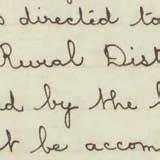 s directed to
Rural Dist
d by the l
t be accom